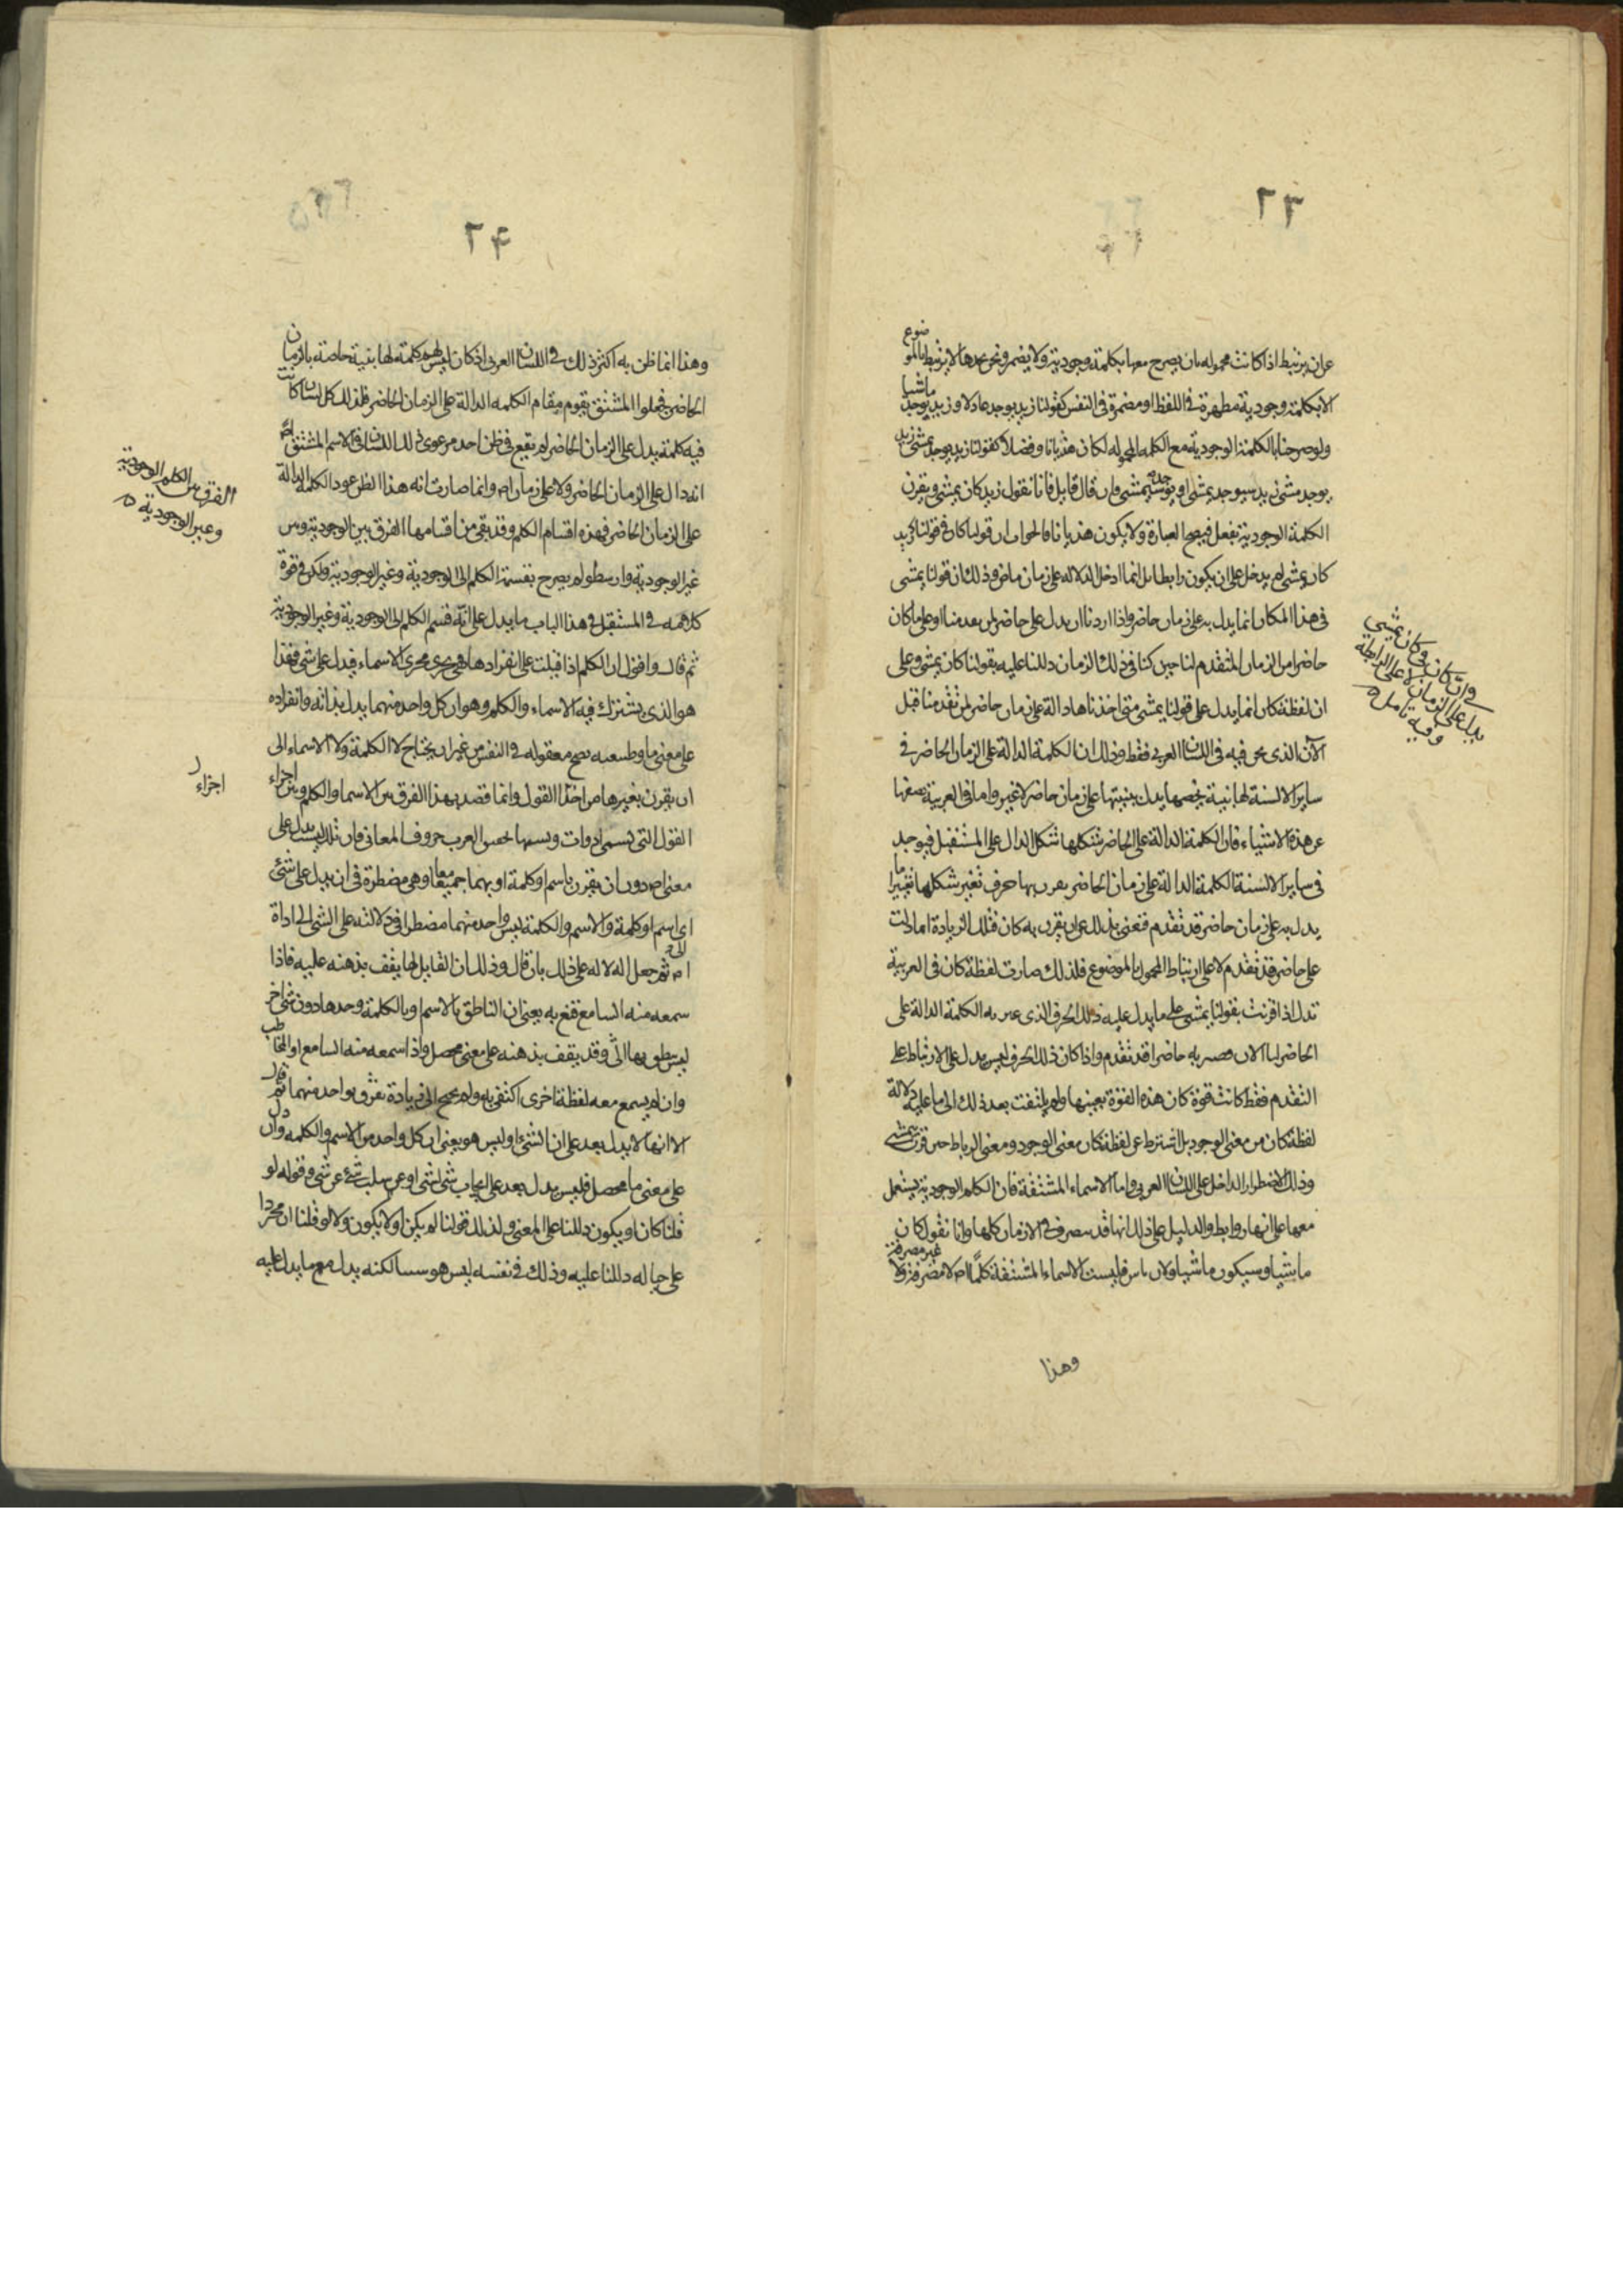 ٢٣
عن ان يرتبط اذا كانت محموله بان يصرح معها بكلمة وجودية ولا يضمر ونحن نجدها لا يرتبط بالموضوع
الا بكلمة وجودية مظهرة فى اللفظ او مضمرة فى النفس كقولنا زيد يوجد عادلا وزيد يوجد ماشيا
ولو صرحنا بالكلمة الوجودية مع الكلمه المحموله لكان هذيانا وفضلا كقولنا زيد يوجد يمشى زيد
يوجد مشى زيد سيوجد يمشى او يمشى فان قال قايل فانا نقول زيد كان يمشى ويقرن
الكلمة الوجودية بفعل فيصح العبارة ولا يكون هذيانا فالجواب ان قولنا كان فى قولنا زيد
كان يمشى لم يدخل على ان يكون رابطا بل انما ادخل لدلاله على زمان ماض وذلك ان قولنا يمشى
فى هذا المكان انما يدل به على زمان حاضر واذا اردنا ان يدل على حاضر لمن بعدمنا او على ما كان
حاضرا من الزمان المتقدم لنا حين كنا فى ذلك الزمان دللنا عليه بقولنا كان يمشى وعلى
ان لفظة كان انما يدل على قولنا يمشى متى اخذناها دالة على زمان حاضر لمن تقدمنا قبل
الآن الذى نحن فيه فى اللسان العربى فقط وذلك ان الكلمة الدالة على الزمان الحاضر فى
ساير الالسنة لها بنية تخصها يدل ببنيتها على زمان حاضر لا غير واما فى العربية
عن هذه الاشياء فان الكلمة الدالة على الحاضر شكلها شكل الدال على المستقبل فيوجد
فى ساير الالسنة الكلمة الدالة على زمان الحاضر يقرن بها حرف تغير شكلها تغييرا ما
يدل به على زمان حاضر قد تقدم فغنى بذلك عن ان يقرن به كان فتلك الزيادة انما دلت
على حاضر قد تقدم لا على ارتباط المحمول بالموضوع فلذلك صارت لفظة كان فى العربية
تدل اذا اقرنت بقولنا يمشى على ما يدل عليه ذلك الحرف الذى غير به الكلمة الدالة على
الحاضر لنا الان فصير به حاضرا قد تقدم واذا كان ذلك الحرف ليس يدل على الارتباط على
التقدم فقط كانت قوة كان هذه القوة بعينها ولم يلتفت بعد ذلك الى ما عليه دلالة
لفظة كان من معنى الوجود بل اشترط عن لفظة كان معنى الوجود ومعنى الرباط حين قرن بيمشى
وذلك لاضطرار الداخل على اللسان العربى واما الاسماء المشتقة فان الكلم الوجودية يستعمل
معها على انها روابط والدليل على ذلك انها قد يصرف فى الازمان كلها وانا نقول كان
ماشيا وسيكون ماشيا فليست الاسماء المشتقة كلما لا مصرفة ولا غير مصرفة
وهذا
وان كان فى كان يمشى
يدل على الزمان لا على الرابطة
وفيه تامل
٢٤
وهذا انما ظن به اكثر ذلك فى اللسان العربى اذ كان ليس لهم كلمة لها بنية خاصة بالزمان
الحاضر فجعلوا المشتق يقوم مقام الكلمه الدالة على الزمان الحاضر فلذلك كل لسان كانت
فيه كلمة يدل على الزمان الحاضر لم يقع فى ظن احد من عوى ذلك اللسان فى الاسم المشتق
انه دال على الزمان الحاضر ولا على زمان اصلا وانما صارت انه هذا الظن عود الكلمة الدالة
على الزمان الحاضر فهذه اقسام الكلم وقد بقى من اقسامها الفرق بين الوجودية وبين
غير الوجودية وارسطو لم يصرح بقسمة الكلم الى الوجودية وغير الوجودية ولكن فى قوة
كلامه فى المستقبل فى هذا الباب ما يدل على انه قسم الكلم الى الوجودية وغير الوجودية
ثم قال واقول ان الكلم اذا قيلت على انفرادها فهى تجرى مجرى الاسماء فيدل على شى فهذا
هو الذى يشترك فيه الاسماء والكلم وهو ان كل واحد منهما يدل بذاته وانفراده
على معنى ما معقوله فى النفس من غير ان يحتاج لا الكلمة ولا الاسماء الى
ان يقرن بغيرها من اجزاء القول وانما قصد بهذا الفرق بين الاسما والكلم وبين اجزاء
القول التى تسمى ادوات ويسميها العرب حروف المعانى فان تلك ليست يدل على
معنى اصلا دون ان يقرن باسم او كلمة او بهما جميعا معا وهى مضطرة فى ان يدل على شئ
الى اسم او كلمة والاسم والكلمة ليس واحد منهما مضطرا فى دلالته على الشى الى اداة
ثم جعل الدلاله على ذلك بان قال وذلك ان القايل لها يقف بذهنه عليه فاذا
سمعه منه السامع قنع به يعنى ان الناطق بالاسم وبالكلمة وحدها دون شى اخر
ليس ينطق بها الا وقد يقف بذهنه على معنى محصل واذا سمعه منه السامع او المخاطب
وان لم يسمع معه لفظة اخرى اكتفى به ولم يحتج الى زيادة تقرن بواحد منهما ثم قال
الا انها لا يدل بعد على ان الشئ او ليس هو يعنى ان كل واحد من الاسم والكلمه وان دل
على معنى ما محصل فليس يدل بعد على ايجاب شى لشى او عن سلب شئ عن شى وقوله لو
قلنا كان او يكون دللنا على المعنى ولذلك قولنا لم يكن او لا يكون ولا لو قلنا ان مجردا
على حياله دللنا عليه وذلك فى نفسه ليس هو لكنه يدل مع ما يدل عليه
الفرق بين الكلم الوجودية
وغير الوجودية
اجزاء